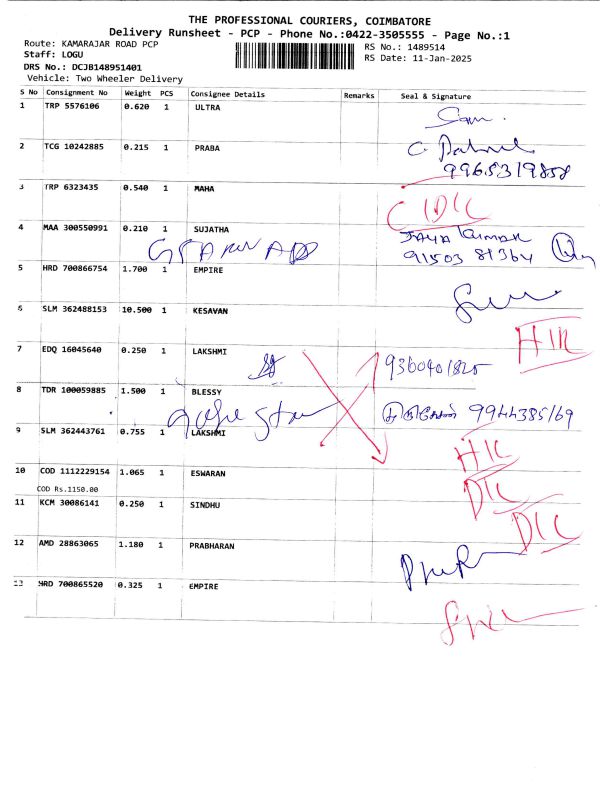 THE PROFESSIONAL COURIERS, COIMBATORE
Delivery Runsheet - PCP - Phone No.:0422-3505555 - Page No.:1
Route: KAMARAJAR ROAD PCP
RS No.: 1489514
Staff: LOGU
RS Date: 11-Jan-2025
DRS No.: DCJB148951401
Vehicle: Two Wheeler Delivery
S No Consignment No Weight PCS Consignee Details Remarks Seal & Signature
1 TRP 5576106 0.620 1 ULTRA
2 TCG 10242885 0.215 1 PRABA
9965319858
3 TRP 6323435 0.540 1 MAHA
4 MAA 300550991 0.210 1 SUJATHA JAYA KUMAR
91503 81364
5 HRD 700866754 1.700 1 EMPIRE
6 SLM 362488153 10.500 1 KESAVAN
7 EDQ 16045640 0.250 1 LAKSHMI 9360401825
8 TDR 100059885 1.500 1 BLESSY 9944385169
9 SLM 362443761 0.755 1 LAKSHMI
10 COD 1112229154 1.065 1 ESWARAN
COD Rs.1150.00
11 KCM 30086141 0.250 1 SINDHU
12 AMD 28863065 1.180 1 PRABHARAN
13 HRD 700865520 0.325 1 EMPIRE